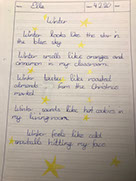 Ella
Winter
Winter looks like the star in
the blue sky.
Winter smells like oranges and
cinnamon in my classroom.
Winter tastes like roasted
almonds, from the Christmas
market.
Winter sounds like hot cookies in
my livingroom.
Winter feels like cold
snowballs hitting my face.